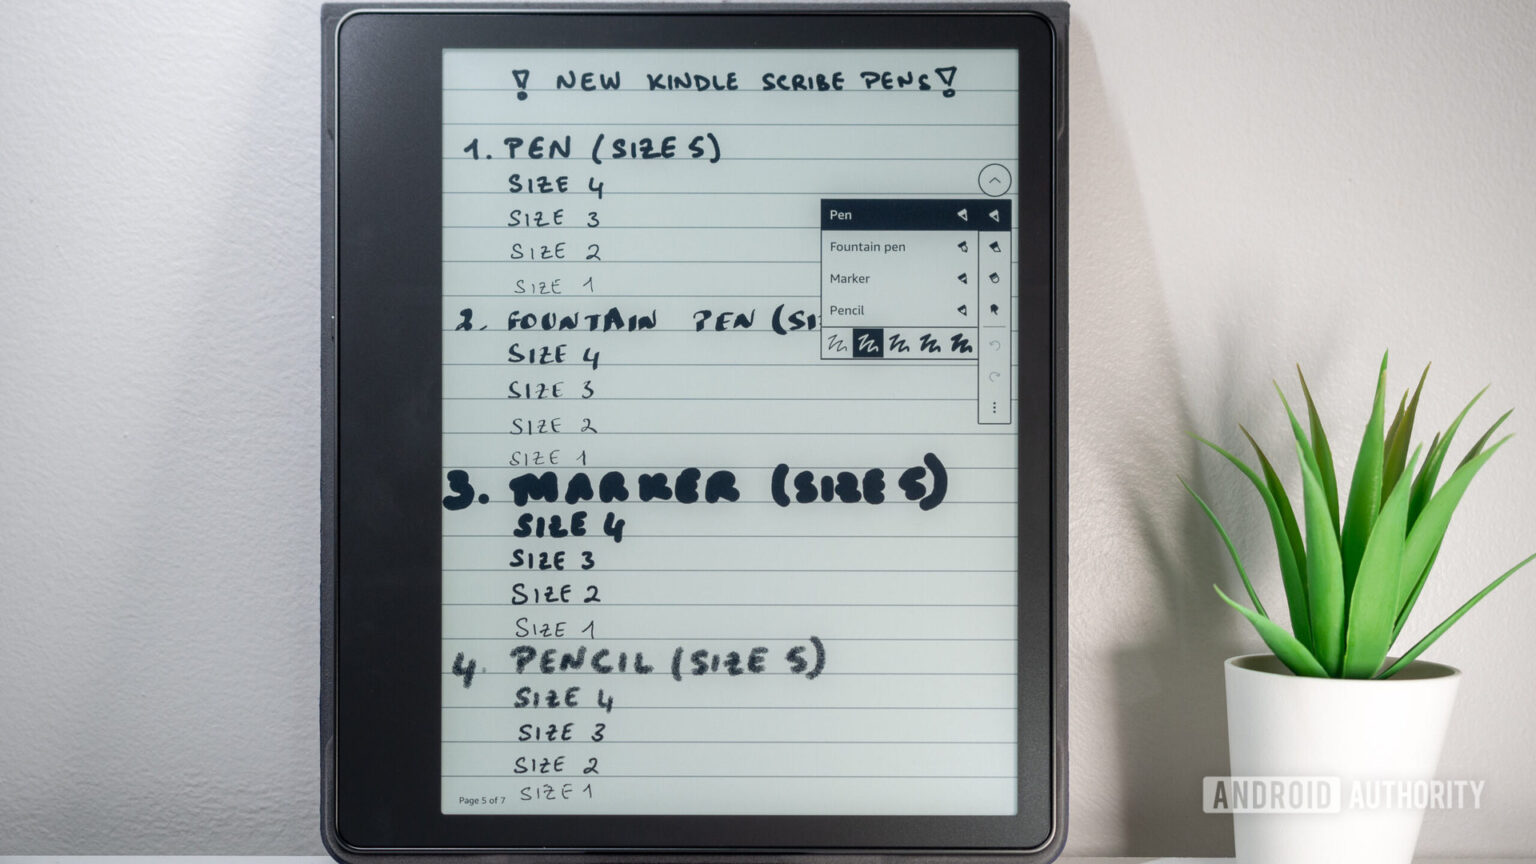 ! NEW KINDLE SCRIBE PENS!
1. PEN (SIZE 5)
SIZE 4
SIZE 3
SIZE 2
SIZE 1
2. FOUNTAIN PEN (SI
SIZE 4
SIZE 3
SIZE 2
SIZE 1
3. MARKER (SIZE 5)
SIZE 4
SIZE 3
SIZE 2
SIZE 1
4. PENCIL (SIZE 5)
SIZE 4
SIZE 3
SIZE 2
SIZE 1
Page 5 of 7
Pen
Fountain pen
Marker
Pencil
ANDROID AUTHORITY